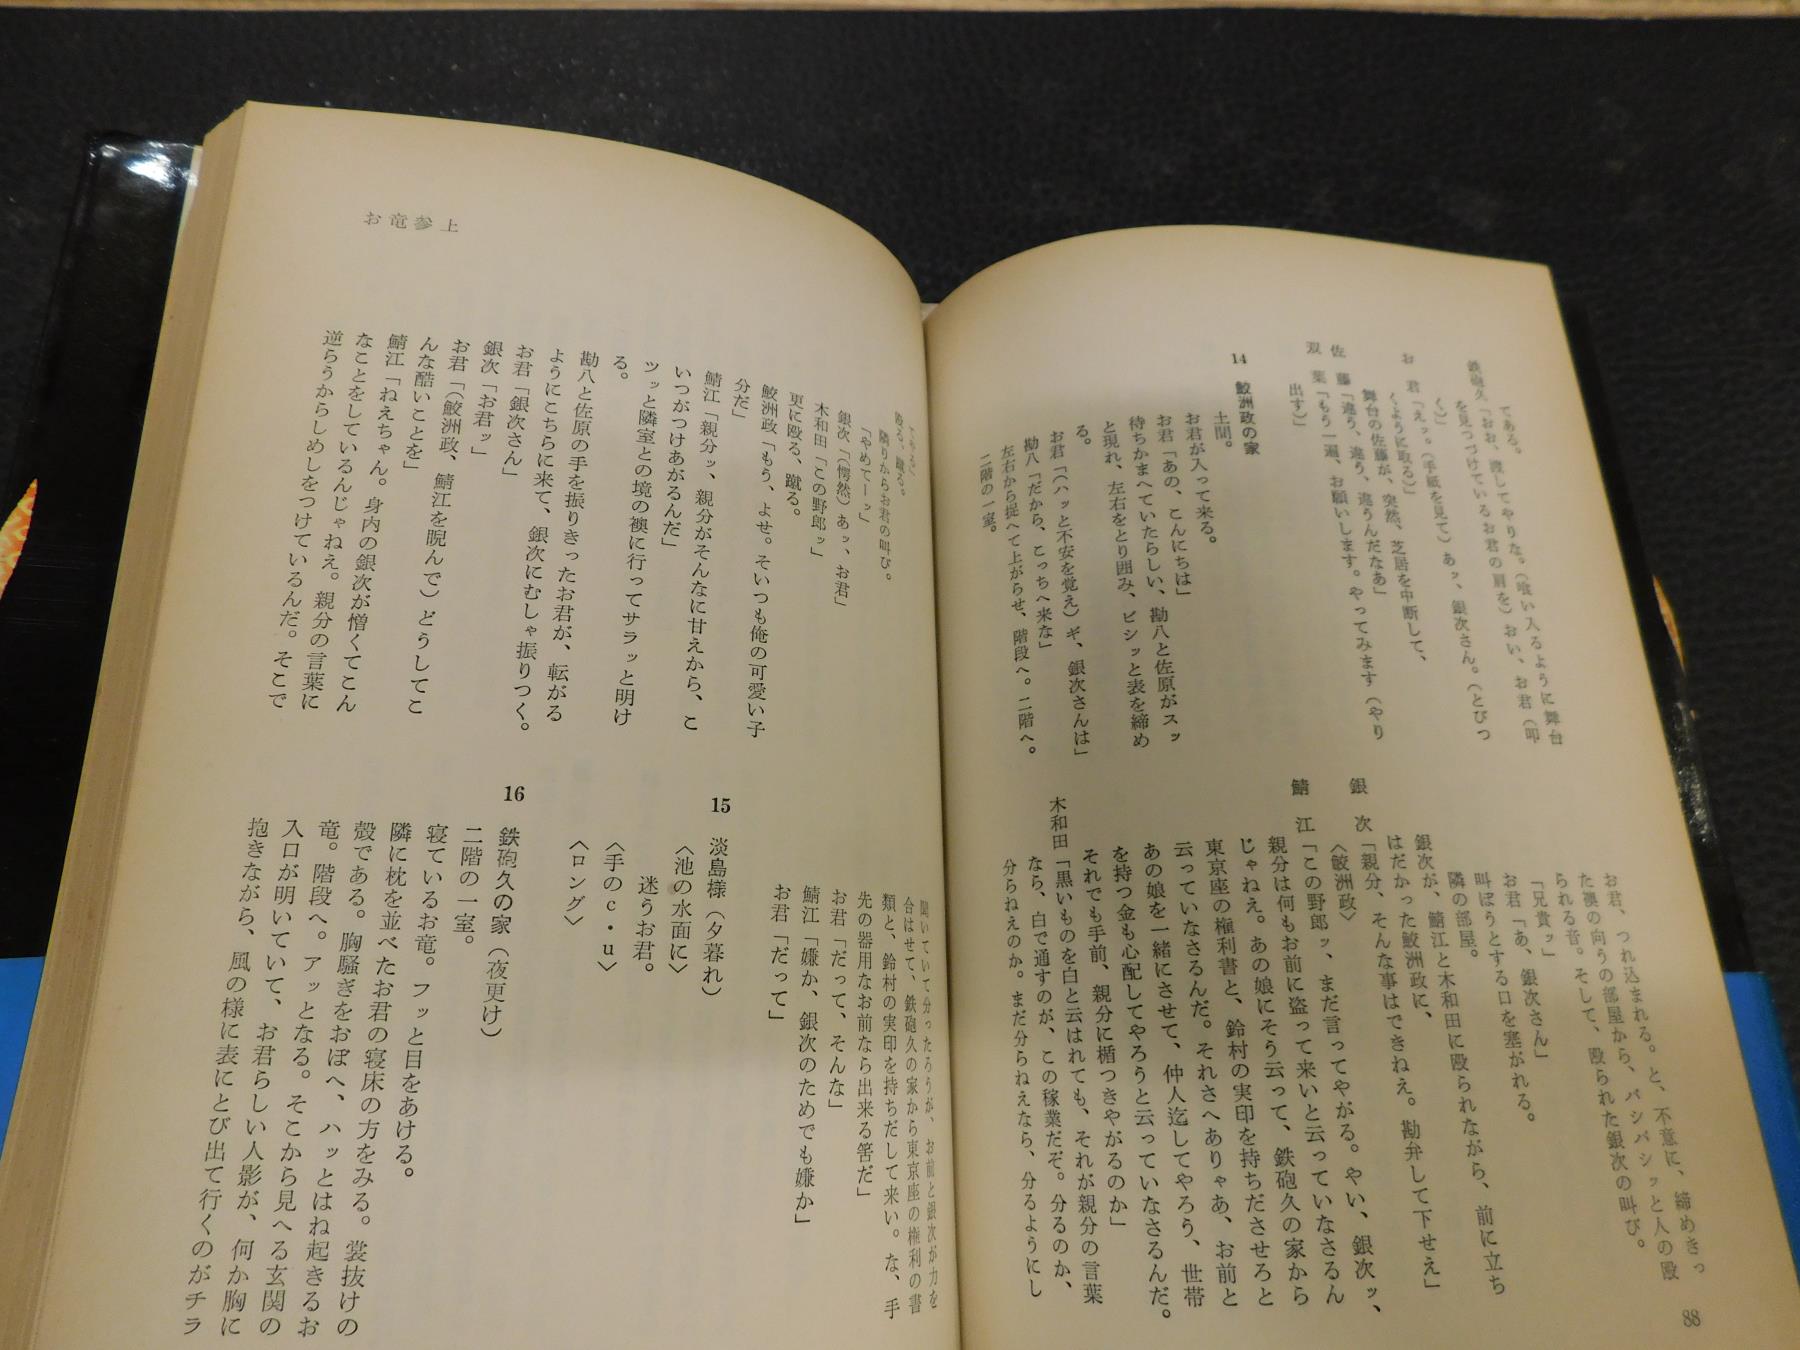 てある。
鉄砲久「おお、渡してやりな。（喰い入るように舞台
を見つづけているお君の肩を）おい、お君（叩
く）」
お　君「えッ。（手紙を見て）あッ、銀次さん。（とびつ
くように取る）」
舞台の佐藤が、突然、芝居を中断して、
佐　藤「違う、違う、違うんだなあ」
双　葉「もう一遍、お願いします。やってみます（やり
出す）」
14　鮫洲政の家
土間。
お君が入って来る。
お君「あの、こんにちは」
待ちかまへていたらしい、勘八と佐原がスッ
と現れ、左右をとり囲み、ビシッと表を締め
る。
お君「（ハッと不安を覚え）ギ、銀次さんは」
勘八「だから、こっちへ来な」
左右から捉へて上がらせ、階段へ。二階へ。
二階の一室。
お君、つれ込まれる。と、不意に、締めきっ
た襖の向うの部屋から、バシバシッと人の殴
られる音。そして、殴られた銀次の叫び。
「兄貴ッ」
お君「あ、銀次さん」
叫ぼうとする口を塞がれる。
隣の部屋。
銀次が、鯖江と木和田に殴られながら、前に立ち
はだかった鮫洲政に、
銀　次「親分、そんな事はできねえ。勘弁して下せえ」
〈鮫洲政〉
鯖　江「この野郎ッ、まだ言ってやがる。やい、銀次ッ、
親分は何もお前に盗って来いと云っていなさるん
じゃねえ。あの娘にそう云って、鉄砲久の家から
東京座の権利書と、鈴村の実印を持ちださせろと
云っていなさるんだ。それさへありゃあ、お前と
あの娘を一緒にさせて、仲人迄してやろう、世帯
を持つ金も心配してやろうと云っていなさるんだ。
それでも手前、親分に楯つきやがるのか」
木和田「黒いものを白と云はれても、それが親分の言葉
なら、白で通すのが、この稼業だぞ。分るのか、
分らねえのか。まだ分らねえなら、分るようにし
88
お竜参上
てやる」
殴る、蹴る。
隣りからお君の叫び。
「やめてーッ」
銀次「（愕然）あッ、お君」
木和田「この野郎ッ」
更に殴る、蹴る。
鮫洲政「もう、よせ。そいつも俺の可愛い子
分だ」
鯖江「親分ッ、親分がそんなに甘えから、こ
いつがつけあがるんだ」
ツッと隣室との境の襖に行ってサラッと明け
る。
勘八と佐原の手を振りきったお君が、転がる
ようにこちらに来て、銀次にむしゃ振りつく。
お君「銀次さん」
銀次「お君ッ」
お君「（鮫洲政、鯖江を睨んで）どうしてこ
んな酷いことを」
鯖江「ねえちゃん。身内の銀次が憎くてこん
なことをしているんじゃねえ。親分の言葉に
逆らうからしめしをつけているんだ。そこで
聞いていて分ったろうが、お前と銀次が力を
合はせて、鉄砲久の家から東京座の権利の書
類と、鈴村の実印を持ちだして来い。な、手
先の器用なお前なら出来る筈だ」
お君「だって、そんな」
鯖江「嫌か、銀次のためでも嫌か」
お君「だって」
15　淡島様（夕暮れ）
〈池の水面に〉
迷うお君。
〈手のｃ・ｕ〉
〈ロング〉
16　鉄砲久の家（夜更け）
二階の一室。
寝ているお竜。フッと目をあける。
隣に枕を並べたお君の寝床の方をみる。裳抜けの
殻である。胸騒ぎをおぼへ、ハッとはね起きるお
竜。階段へ。アッとなる。そこから見へる玄関の
入口が明いていて、お君らしい人影が、何か胸に
抱きながら、風の様に表にとび出て行くのがチラ